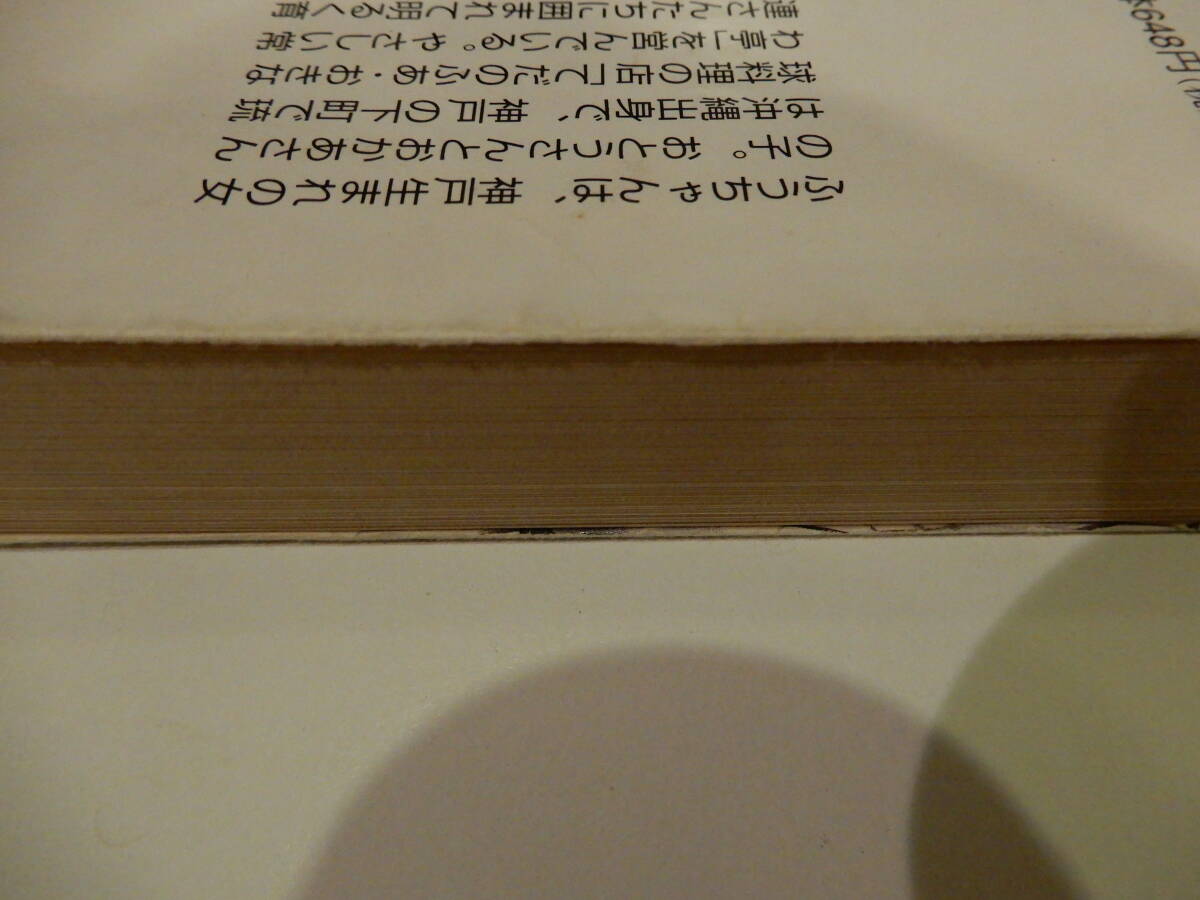 ふうちゃんは、神戸生まれの女
の子。おとうさんとおかあさん
は沖縄出身で、神戸の下町で琉
球料理の店「てだのふあ・おきな
わ亭」を営んでいる。やさしい常
連さんたちに囲まれて明るく育
648円